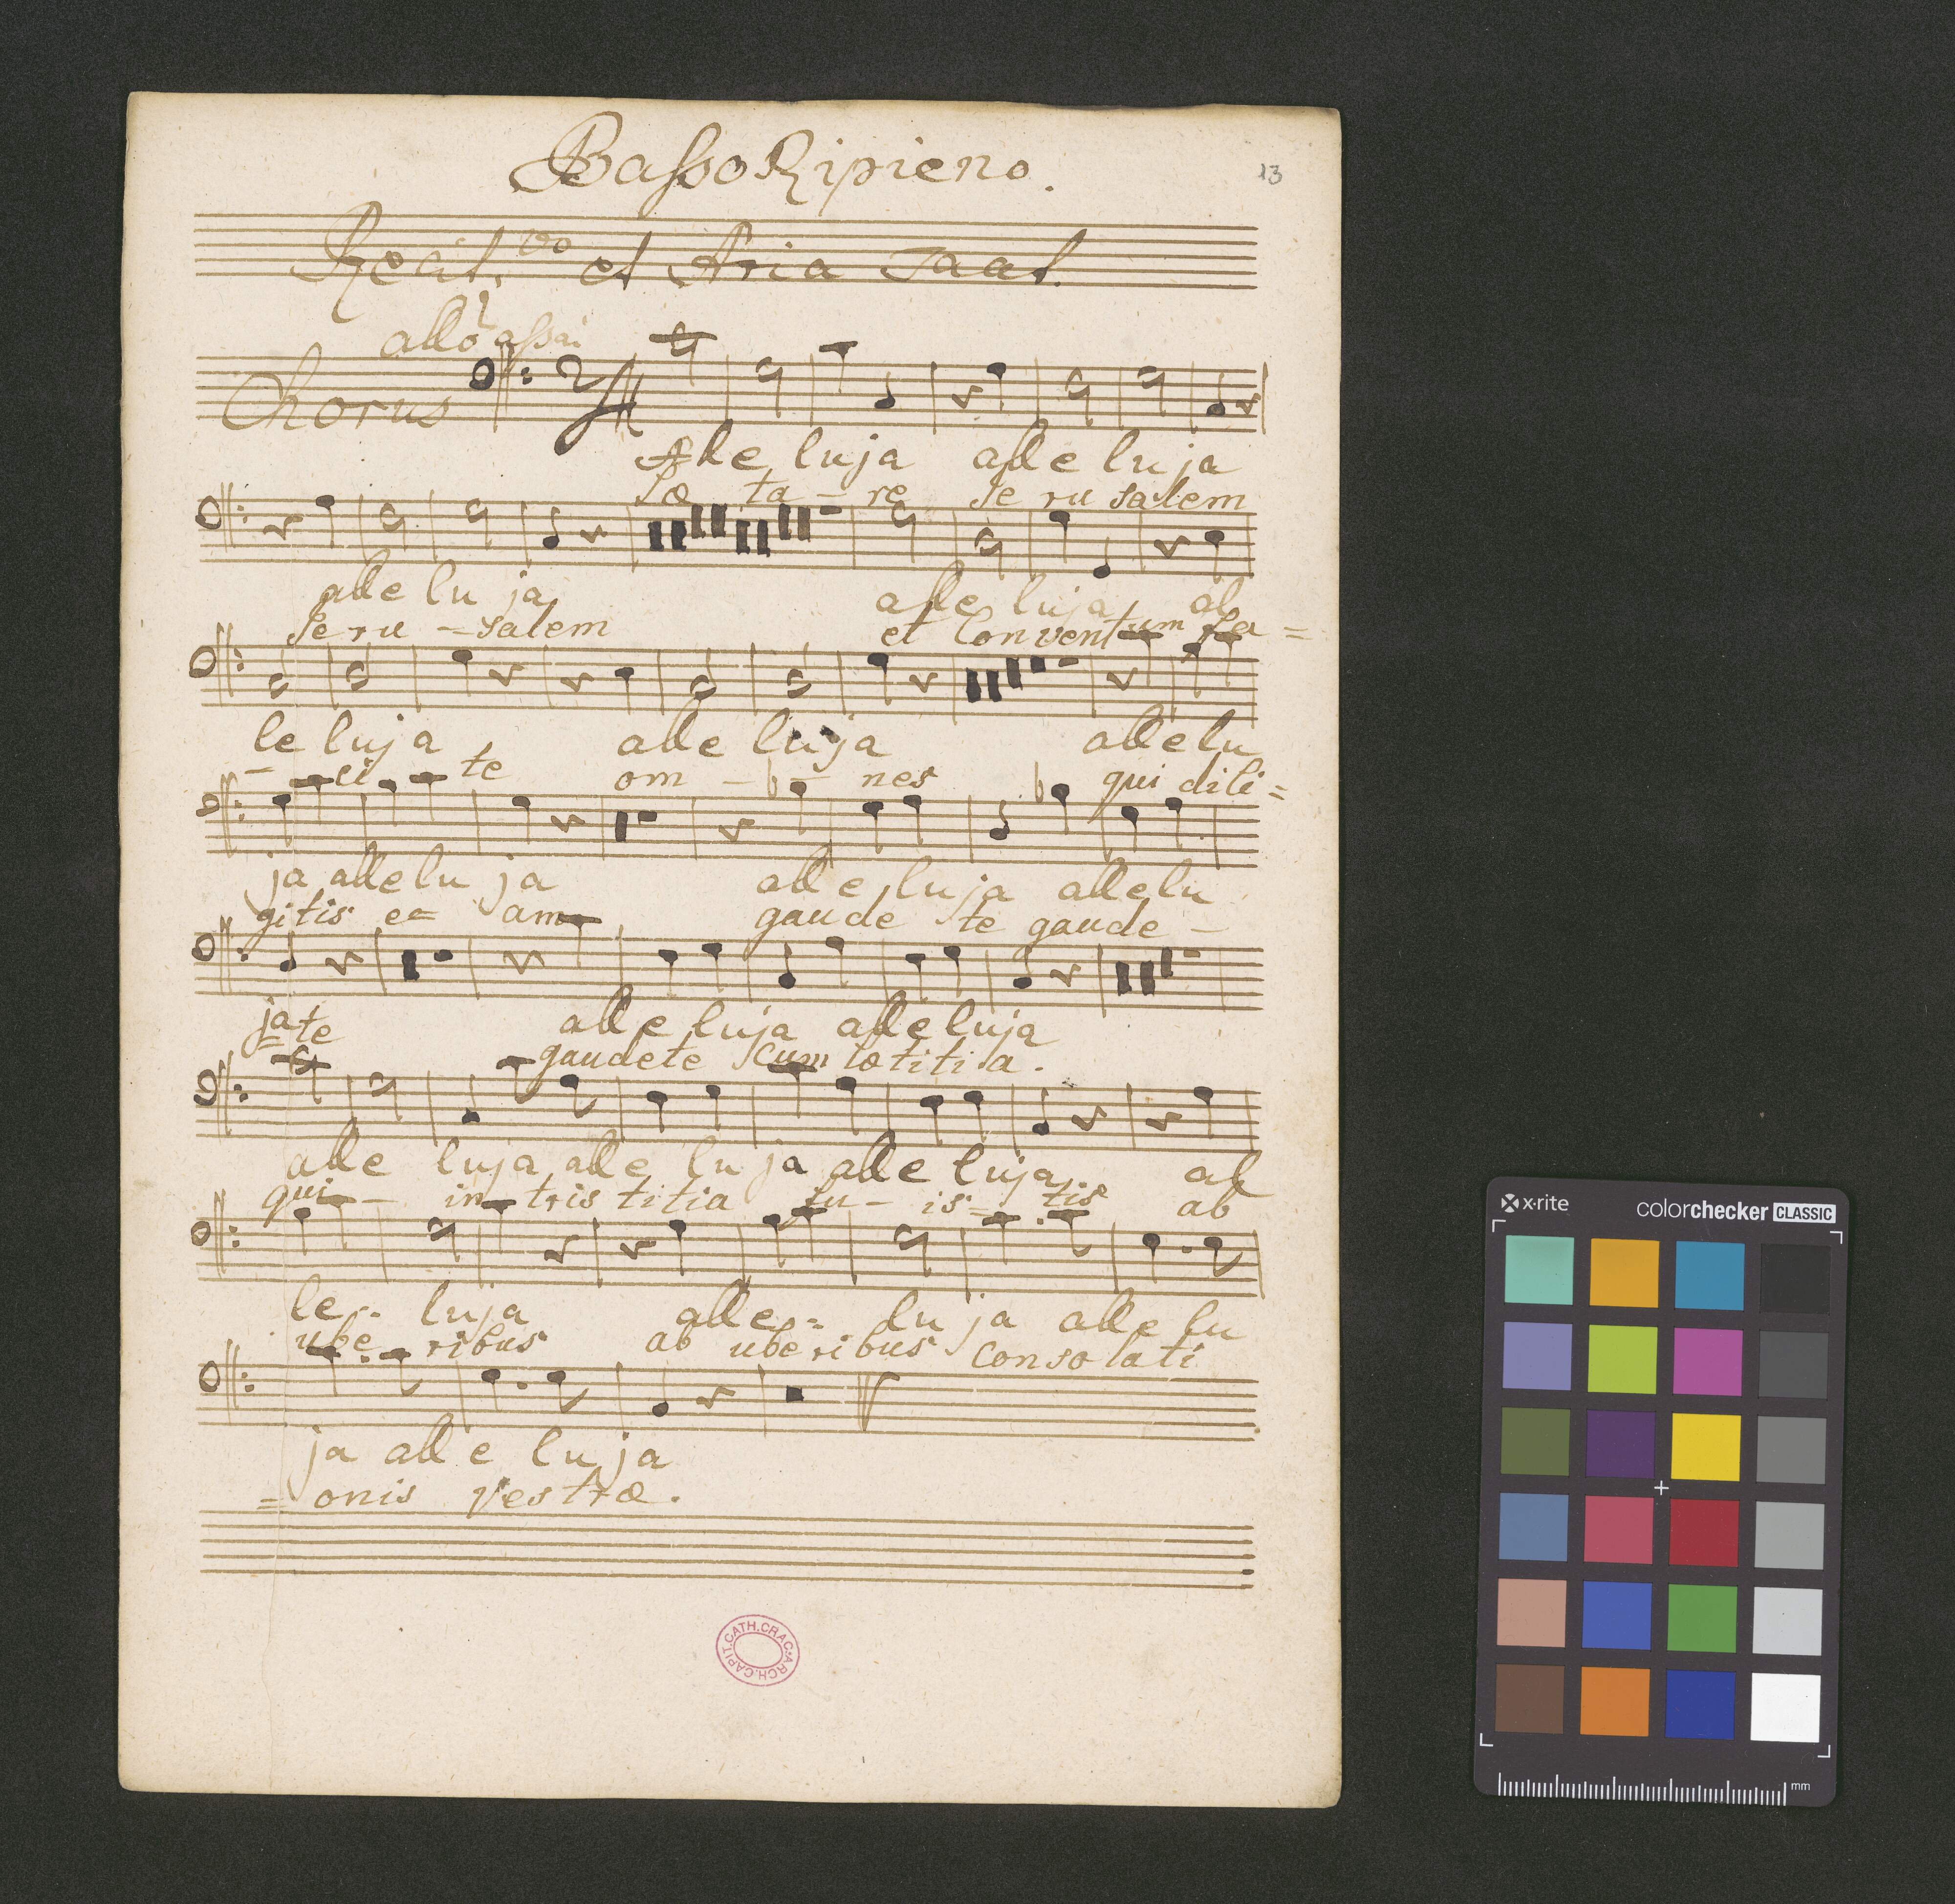 Basso Ripieno.
13
Recit.vo et Aria tacet.
allo assai
Chorus
Alle luja alle lu ja
Læ ta - re Je ru salem
alle lu ja alle luja al
Je ru - salem et Conventum fa =
le luja alle luja allelu
- ci te om - nes qui dili =
ja allelu ja alle luja allelu
gitis e= am gaude te gaude -
ja alle luja alle luja
= te gaudete cum lætitia.
alle luja alle lu ja alle luja al
qui - in tris titia fu - is = tis ab
le -. luja alle = lu ja alle lu
ube ribus ab uberibus consolati
ja alle lu ja
= onis vestræ.
ARCH.CAPIT.CATH.CRAC.
x·rite
colorchecker CLASSIC
mm